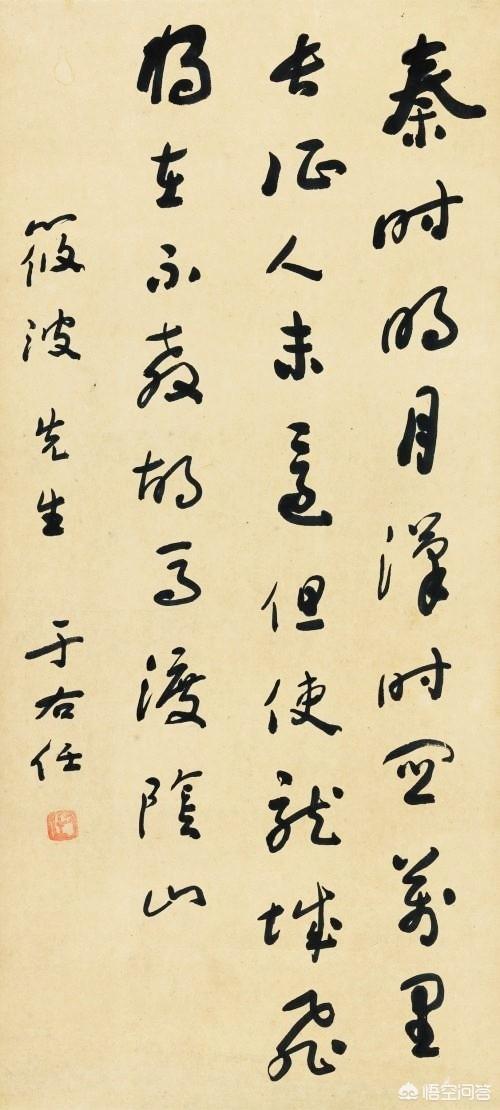 秦时明月漢时関萬里
长征人未還但使龍城飛
将在不教胡马渡陰山
筱波先生 于右任
悟空问答